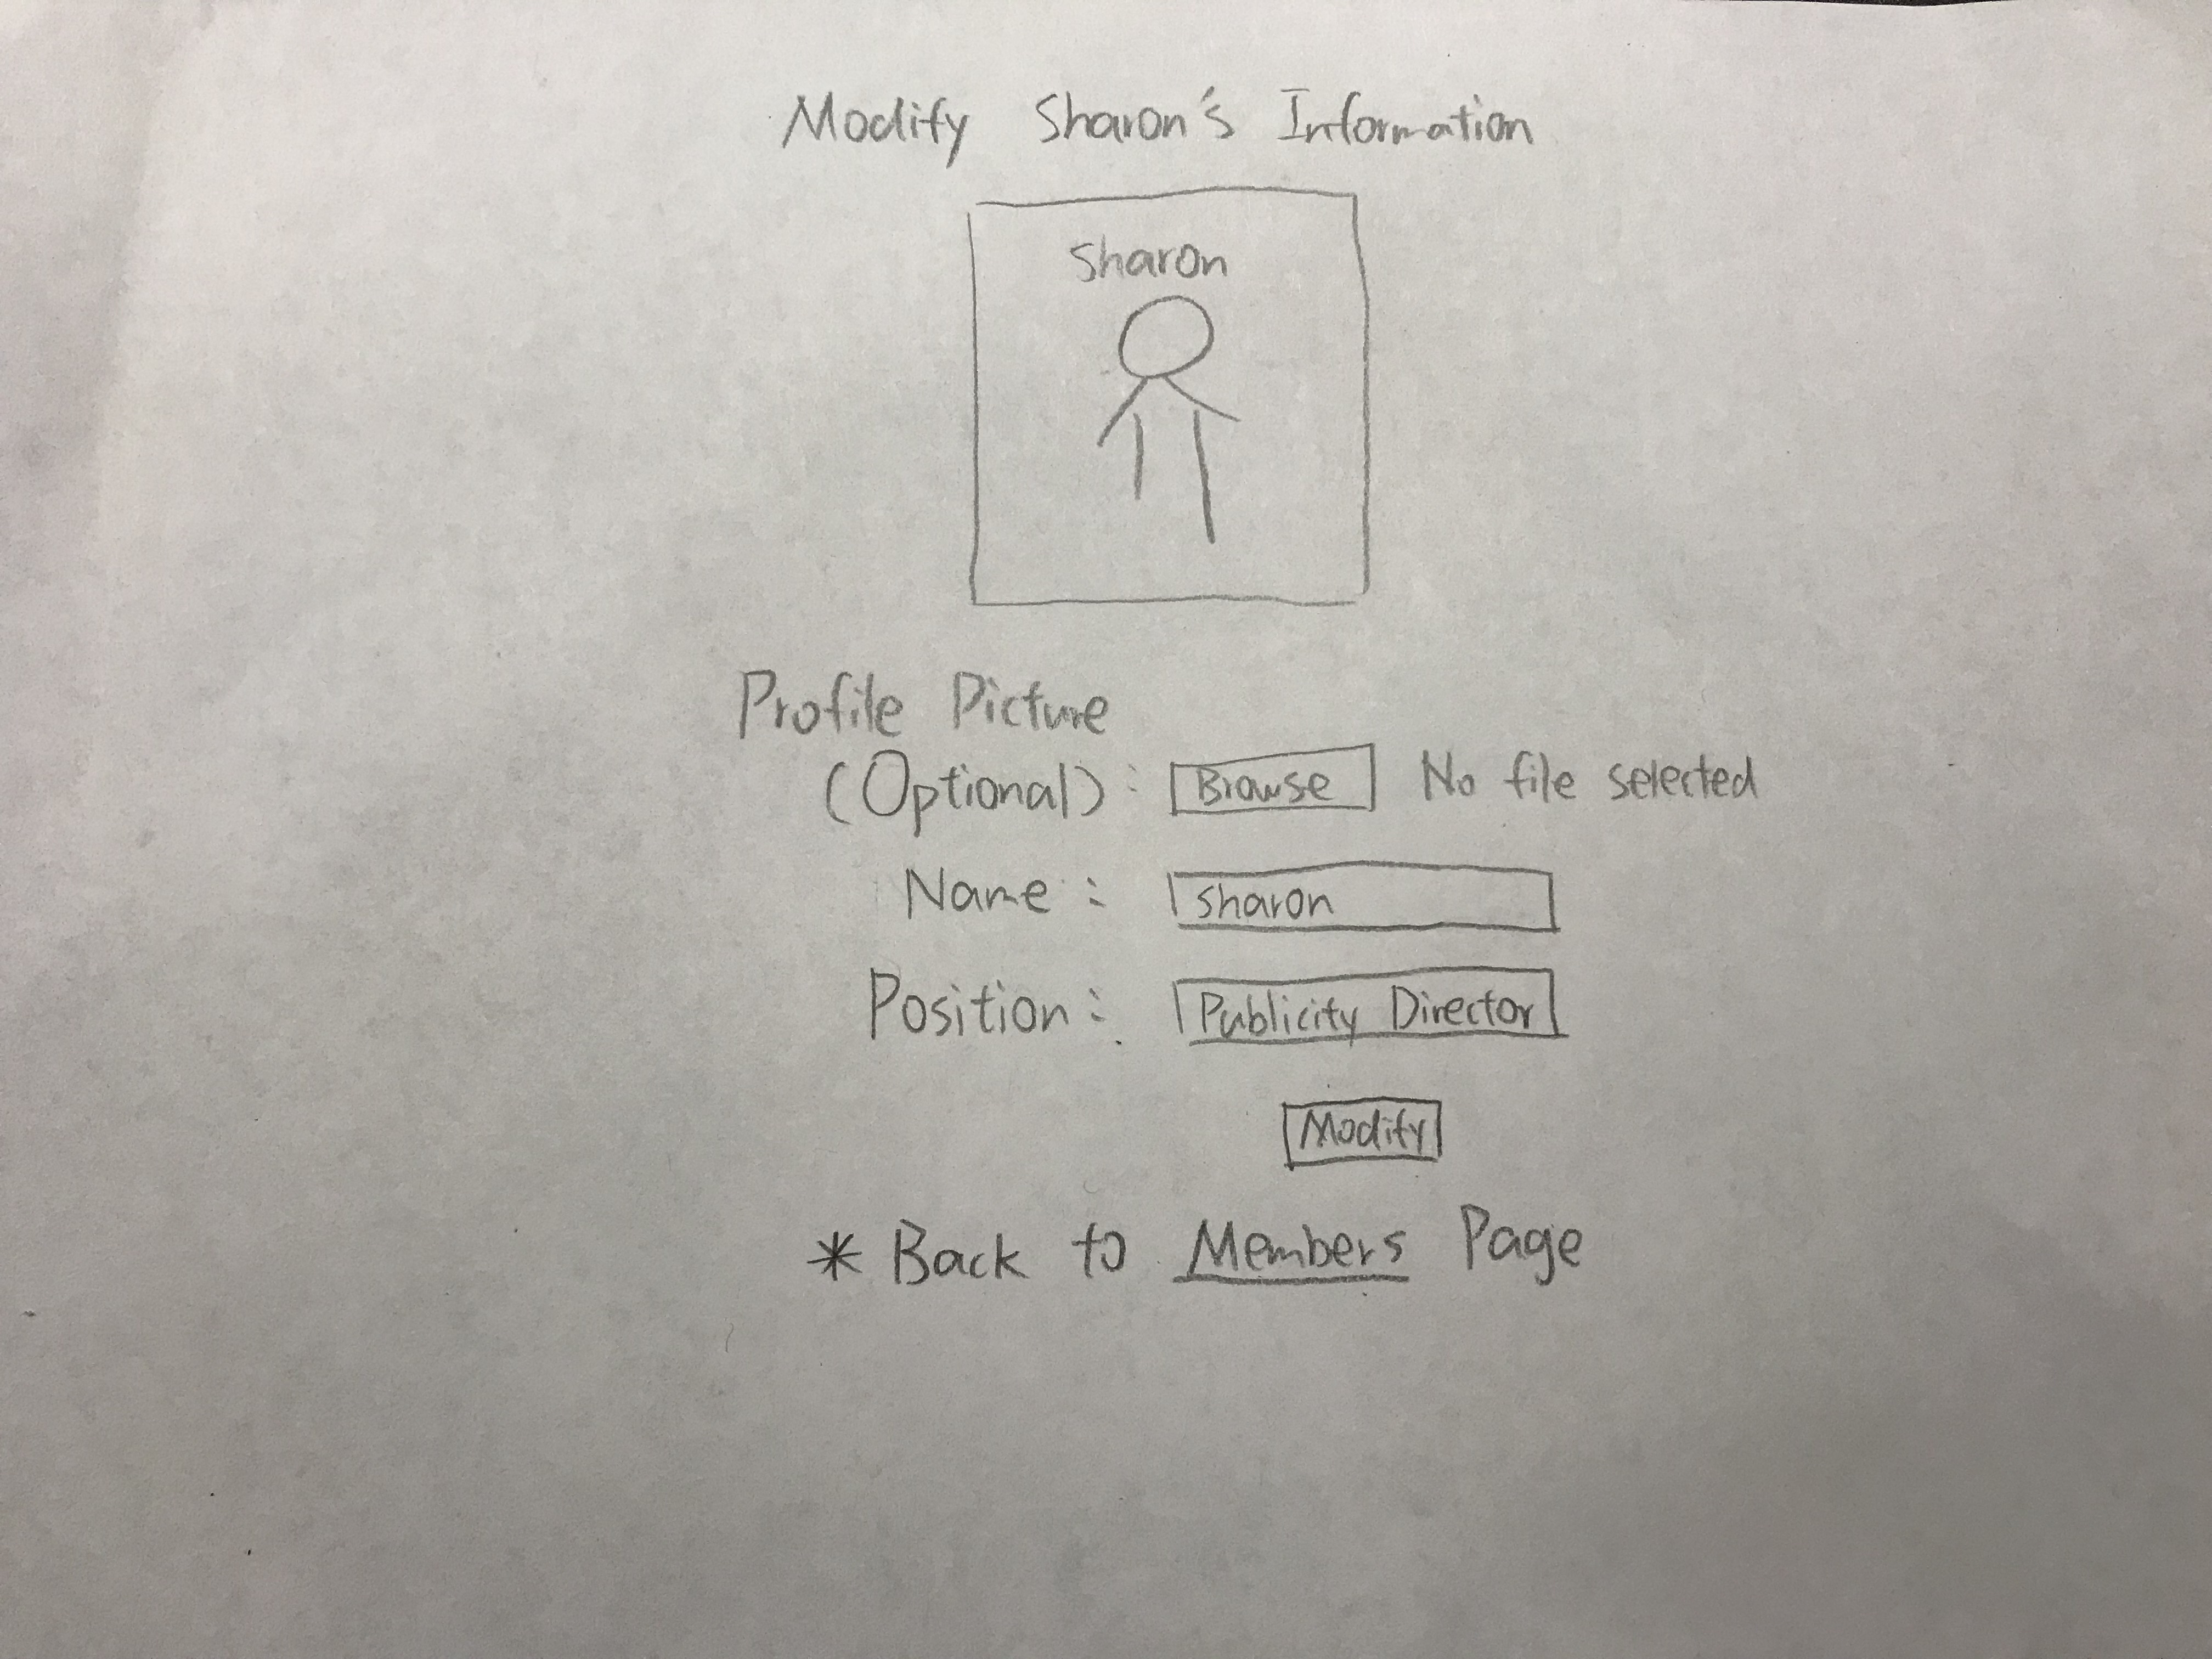 Modify Sharon's Information
Sharon
Profile Picture
(Optional): Browse No file selected
Name: Sharon
Position: Publicity Director
Modify
* Back to Members Page